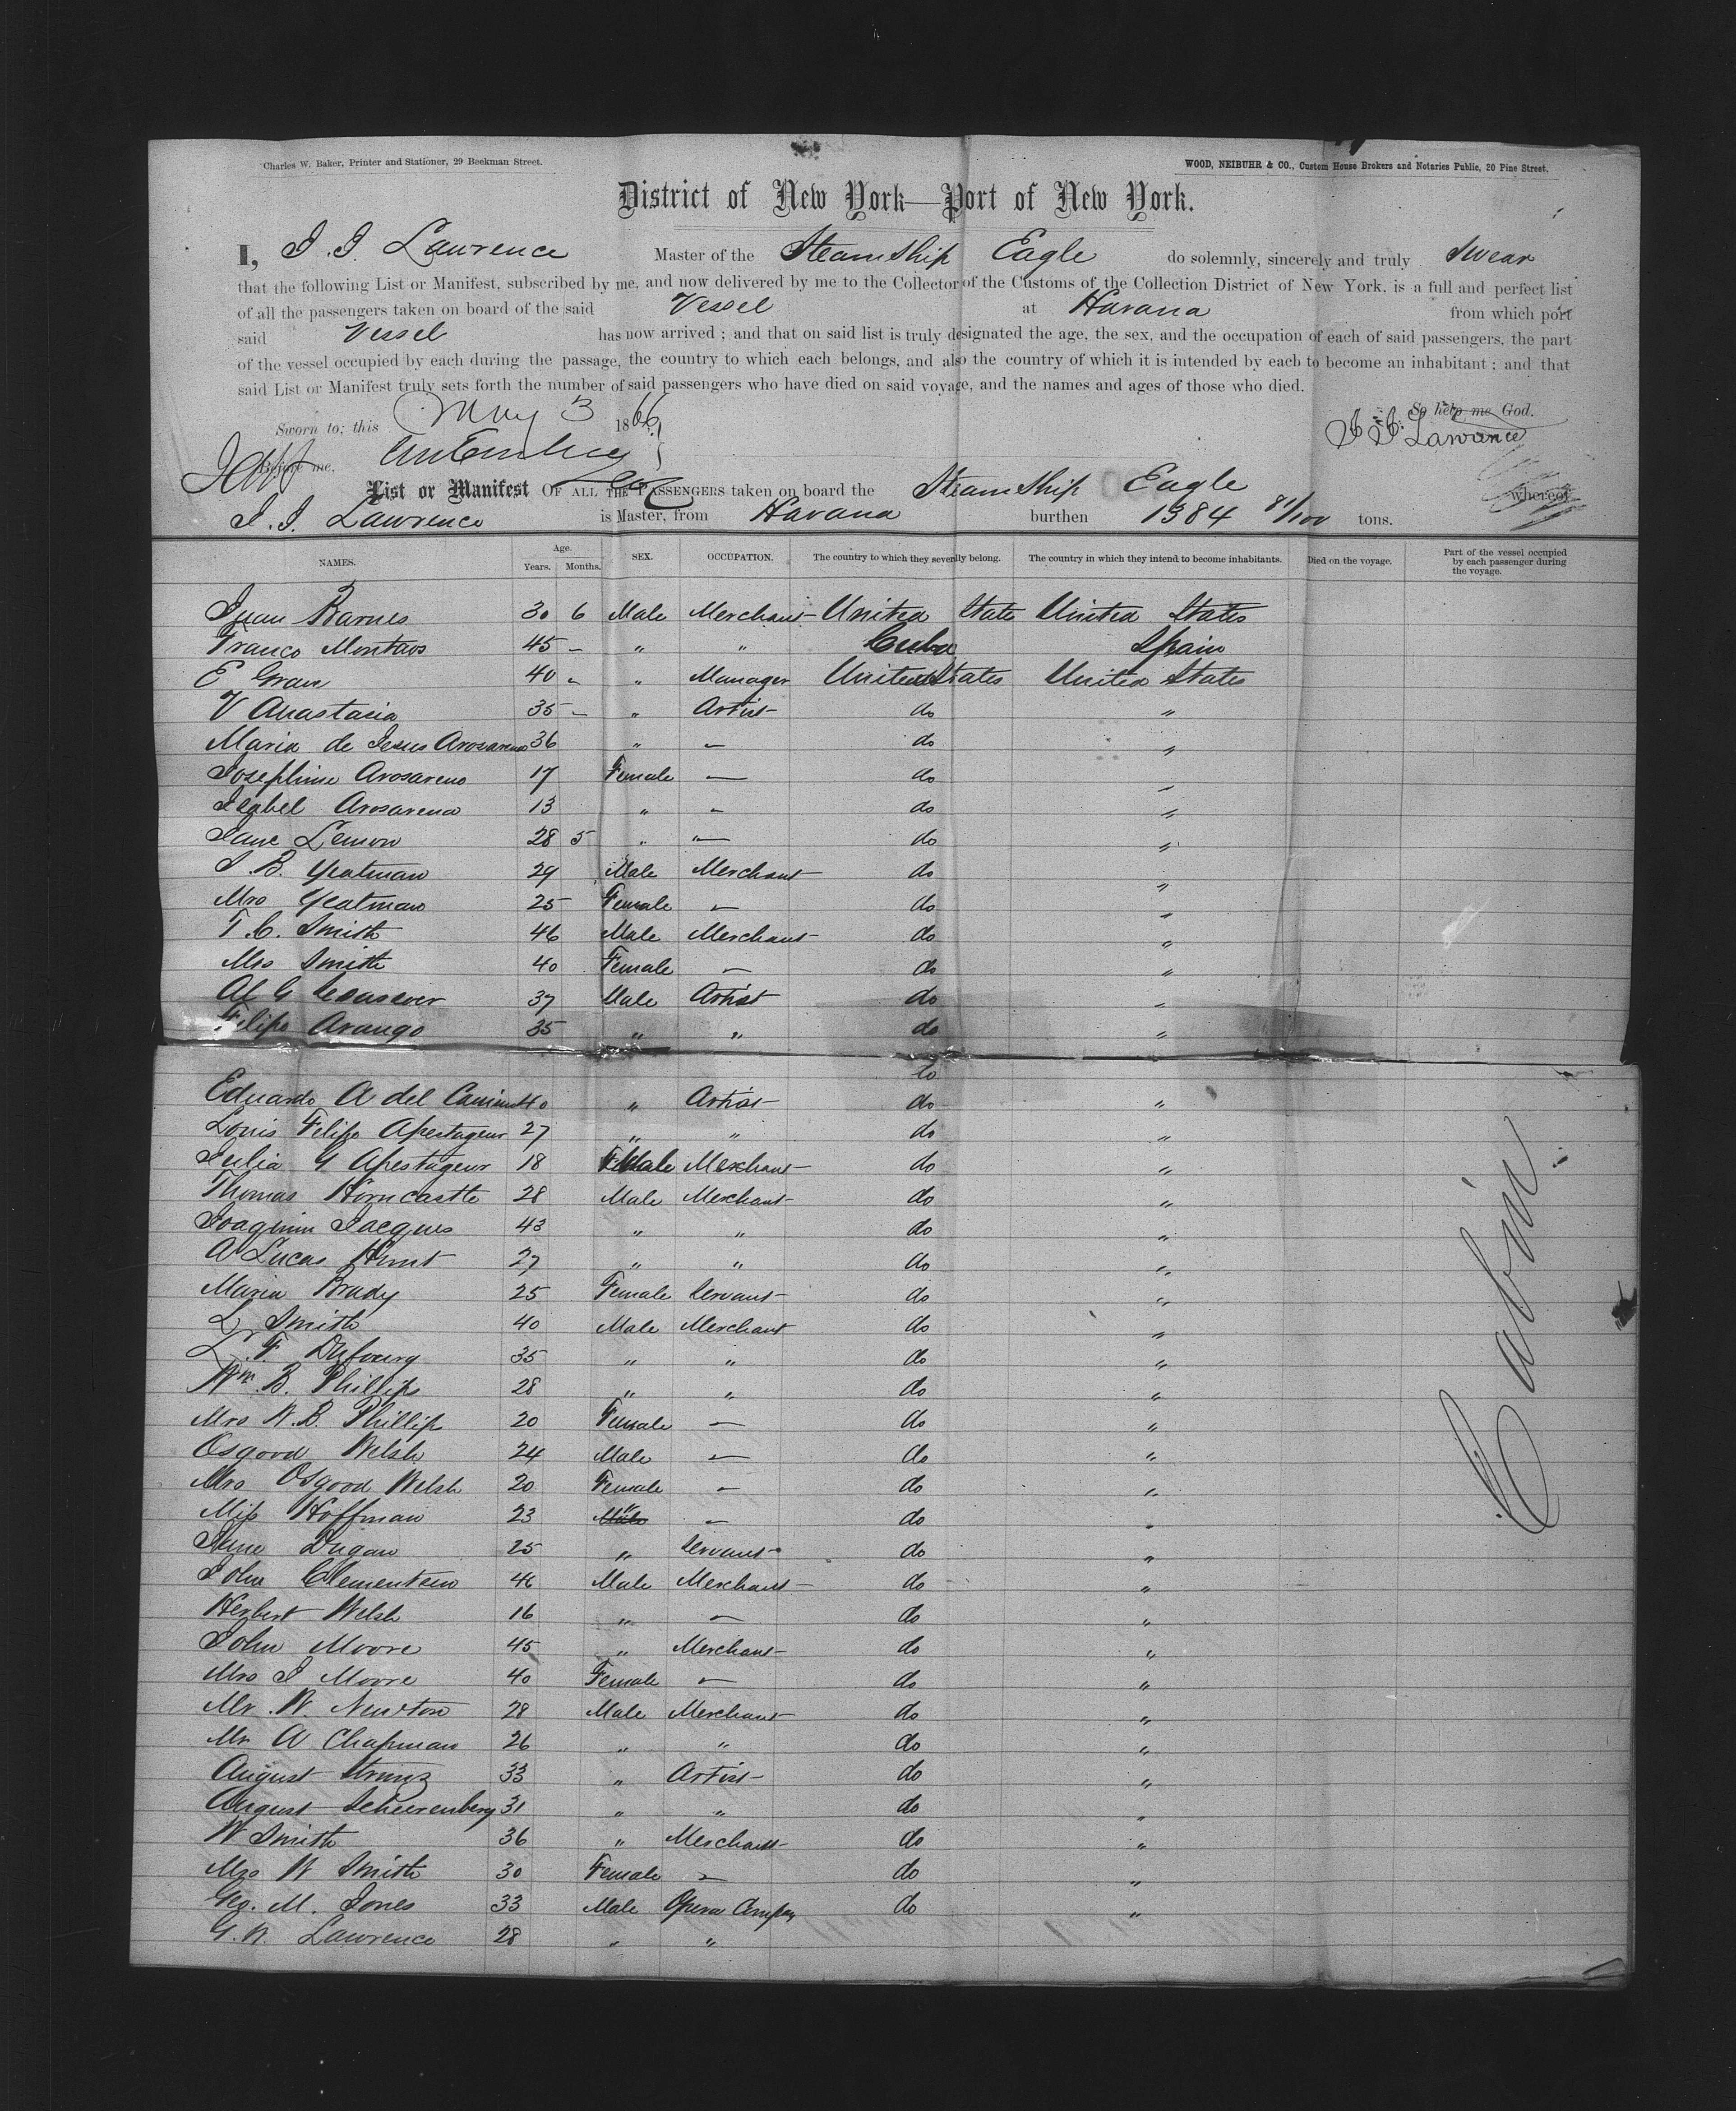 Charles W. Baker, Printer and Stationer, 29 Beekman Street.
WOOD, NEIBUHR & CO., Custom House Brokers and Notaries Public, 20 Pine Street.
District of New York—Port of New York.
I, J. J. Lawrence Master of the Steam Ship Eagle do solemnly, sincerely and truly swear
that the following List or Manifest, subscribed by me, and now delivered by me to the Collector of the Customs of the Collection District of New York, is a full and perfect list
of all the passengers taken on board of the said Vessel at Havana from which port
said Vessel has now arrived ; and that on said list is truly designated the age, the sex, and the occupation of each of said passengers, the part
of the vessel occupied by each during the passage, the country to which each belongs, and also the country of which it is intended by each to become an inhabitant ; and that
said List or Manifest truly sets forth the number of said passengers who have died on said voyage, and the names and ages of those who died.
So help me God.
Sworn to; this May 3 1866
J J Lawrence
Before me,
List or Manifest OF ALL THE PASSENGERS taken on board the Steam Ship Eagle whereof
J. J. Lawrence is Master, from Havana burthen 1384 81/100 tons.
NAMES. Age. Years. Months. SEX. OCCUPATION. The country to which they severally belong. The country in which they intend to become inhabitants. Died on the voyage. Part of the vessel occupied by each passenger during the voyage.
Juan Barnes 30 6 Male Merchant United State United States
Franco Montaos 45 – " " Cuba Spain
E Grau 40 – " Manager United States United States
V Anastasia 35 – " Artist do "
Maria de Jesus Arosarena 36 " – do "
Josephine Arosareno 17 Female – do "
Isabel Arosarena 13 " – do "
Jane Lemon 28 5 " "– do "
J. B. Yeatman 29 Male Merchant do "
Mrs Yeatman 25 Female – do "
T. C. Smith 46 Male Merchant do "
Mrs Smith 40 Female – do "
Al G 37 Male Artist do "
Felipo Arango 35 " " do "
Eduardo A del 40 " Artist do "
Louis Felipo Apestaguer 27 " " do "
Julia G Apestaguer 18 Female Merchant do "
Thomas Horncastle 28 Male Merchant do "
Joaquim Jacques 43 " " do "
A Lucas Hunt 27 " " do "
Maria Brady 25 Female Servant do "
L Smith 40 Male Merchant do "
L. F. Dufourg 35 " " do "
Wm. B. Phillips 28 " " do "
Mrs W. B. Phillip 20 Female – do "
Osgood Welsh 24 Male – do "
Mrs Osgood Welsh 20 Female – do "
Miss Hoffman 23 " – do "
Jane Dugan 25 " Servant do "
John Clementson 46 Male Merchant do "
Herbert Welsh 16 " – do "
John Moore 45 " Merchant do "
Mrs J Moore 40 Female – do "
Mr. W. Newton 28 Male Merchant do "
Mr A Chapman 26 " " do "
August Strunz 33 " Artist do "
August Scheerenberg 31 " " do "
W Smith 36 " Merchant do "
Mrs W Smith 30 Female – do "
Geo. M. Jones 33 Male Opera Company do "
G. W. Lawrence 28 " "
Cabin